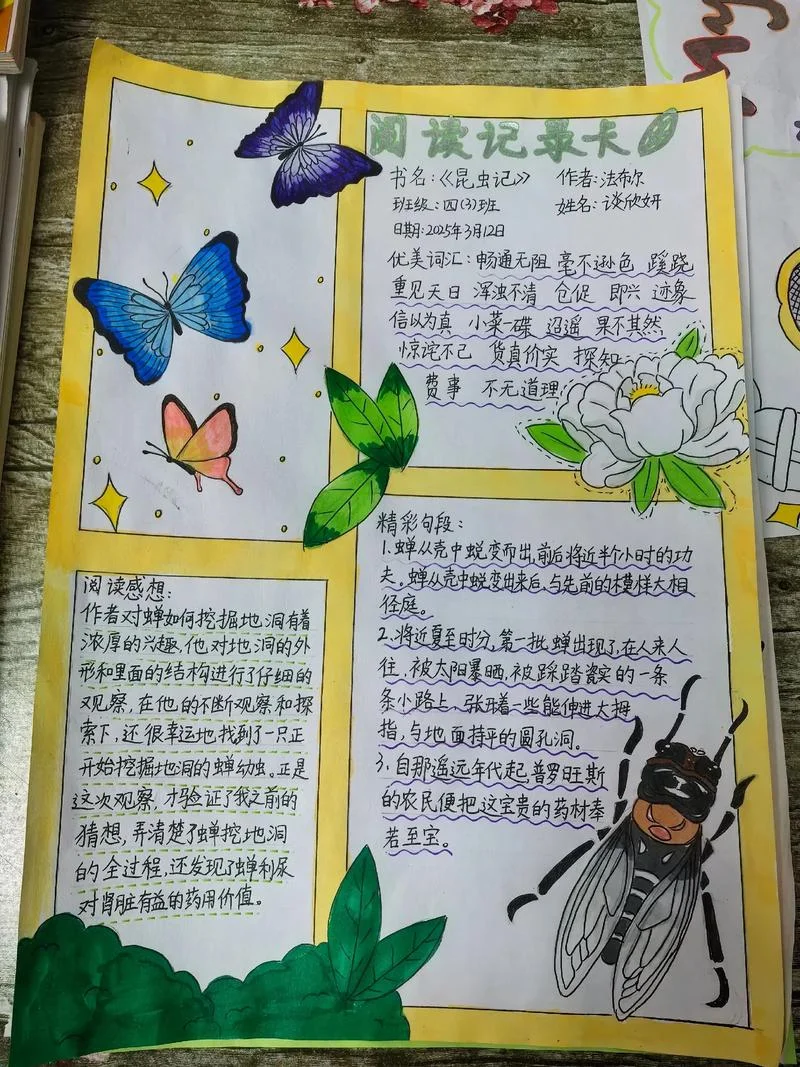 阅读记录卡
书名:《昆虫记》 作者:法布尔
班级:四(3)班 姓名:谈欣妍
日期:2025年3月12日
优美词汇:畅通无阻 毫不逊色 蹊跷
重见天日 浑浊不清 仓促 即兴 迹象
信以为真 小菜一碟 迢遥 果不其然
惊诧不已 货真价实 探知
费事 不无道理
精彩句段:
1.蝉从壳中蜕变而出,前后将近半个小时的功
夫。蝉从壳中蜕变出来后,与先前的模样大相
径庭。
2.将近夏至时分,第一批蝉出现了,在人来人
往、被太阳暴晒,被踩踏瓷实的一条
条小路上,张开着一些能伸进大拇
指,与地面持平的圆孔洞。
3.自那遥远年代起,普罗旺斯
的农民便把这宝贵的药材奉
若至宝。
阅读感想:
作者对蝉如何挖掘地洞有着
浓厚的兴趣,他对地洞的外
形和里面的结构进行了仔细的
观察,在他的不断观察和探
索下,还很幸运地找到了一只正
开始挖掘地洞的蝉幼虫。正是
这次观察,才验证了我之前的
猜想,弄清楚了蝉挖地洞
的全过程,还发现了蝉利尿
对肾脏有益的药用价值。